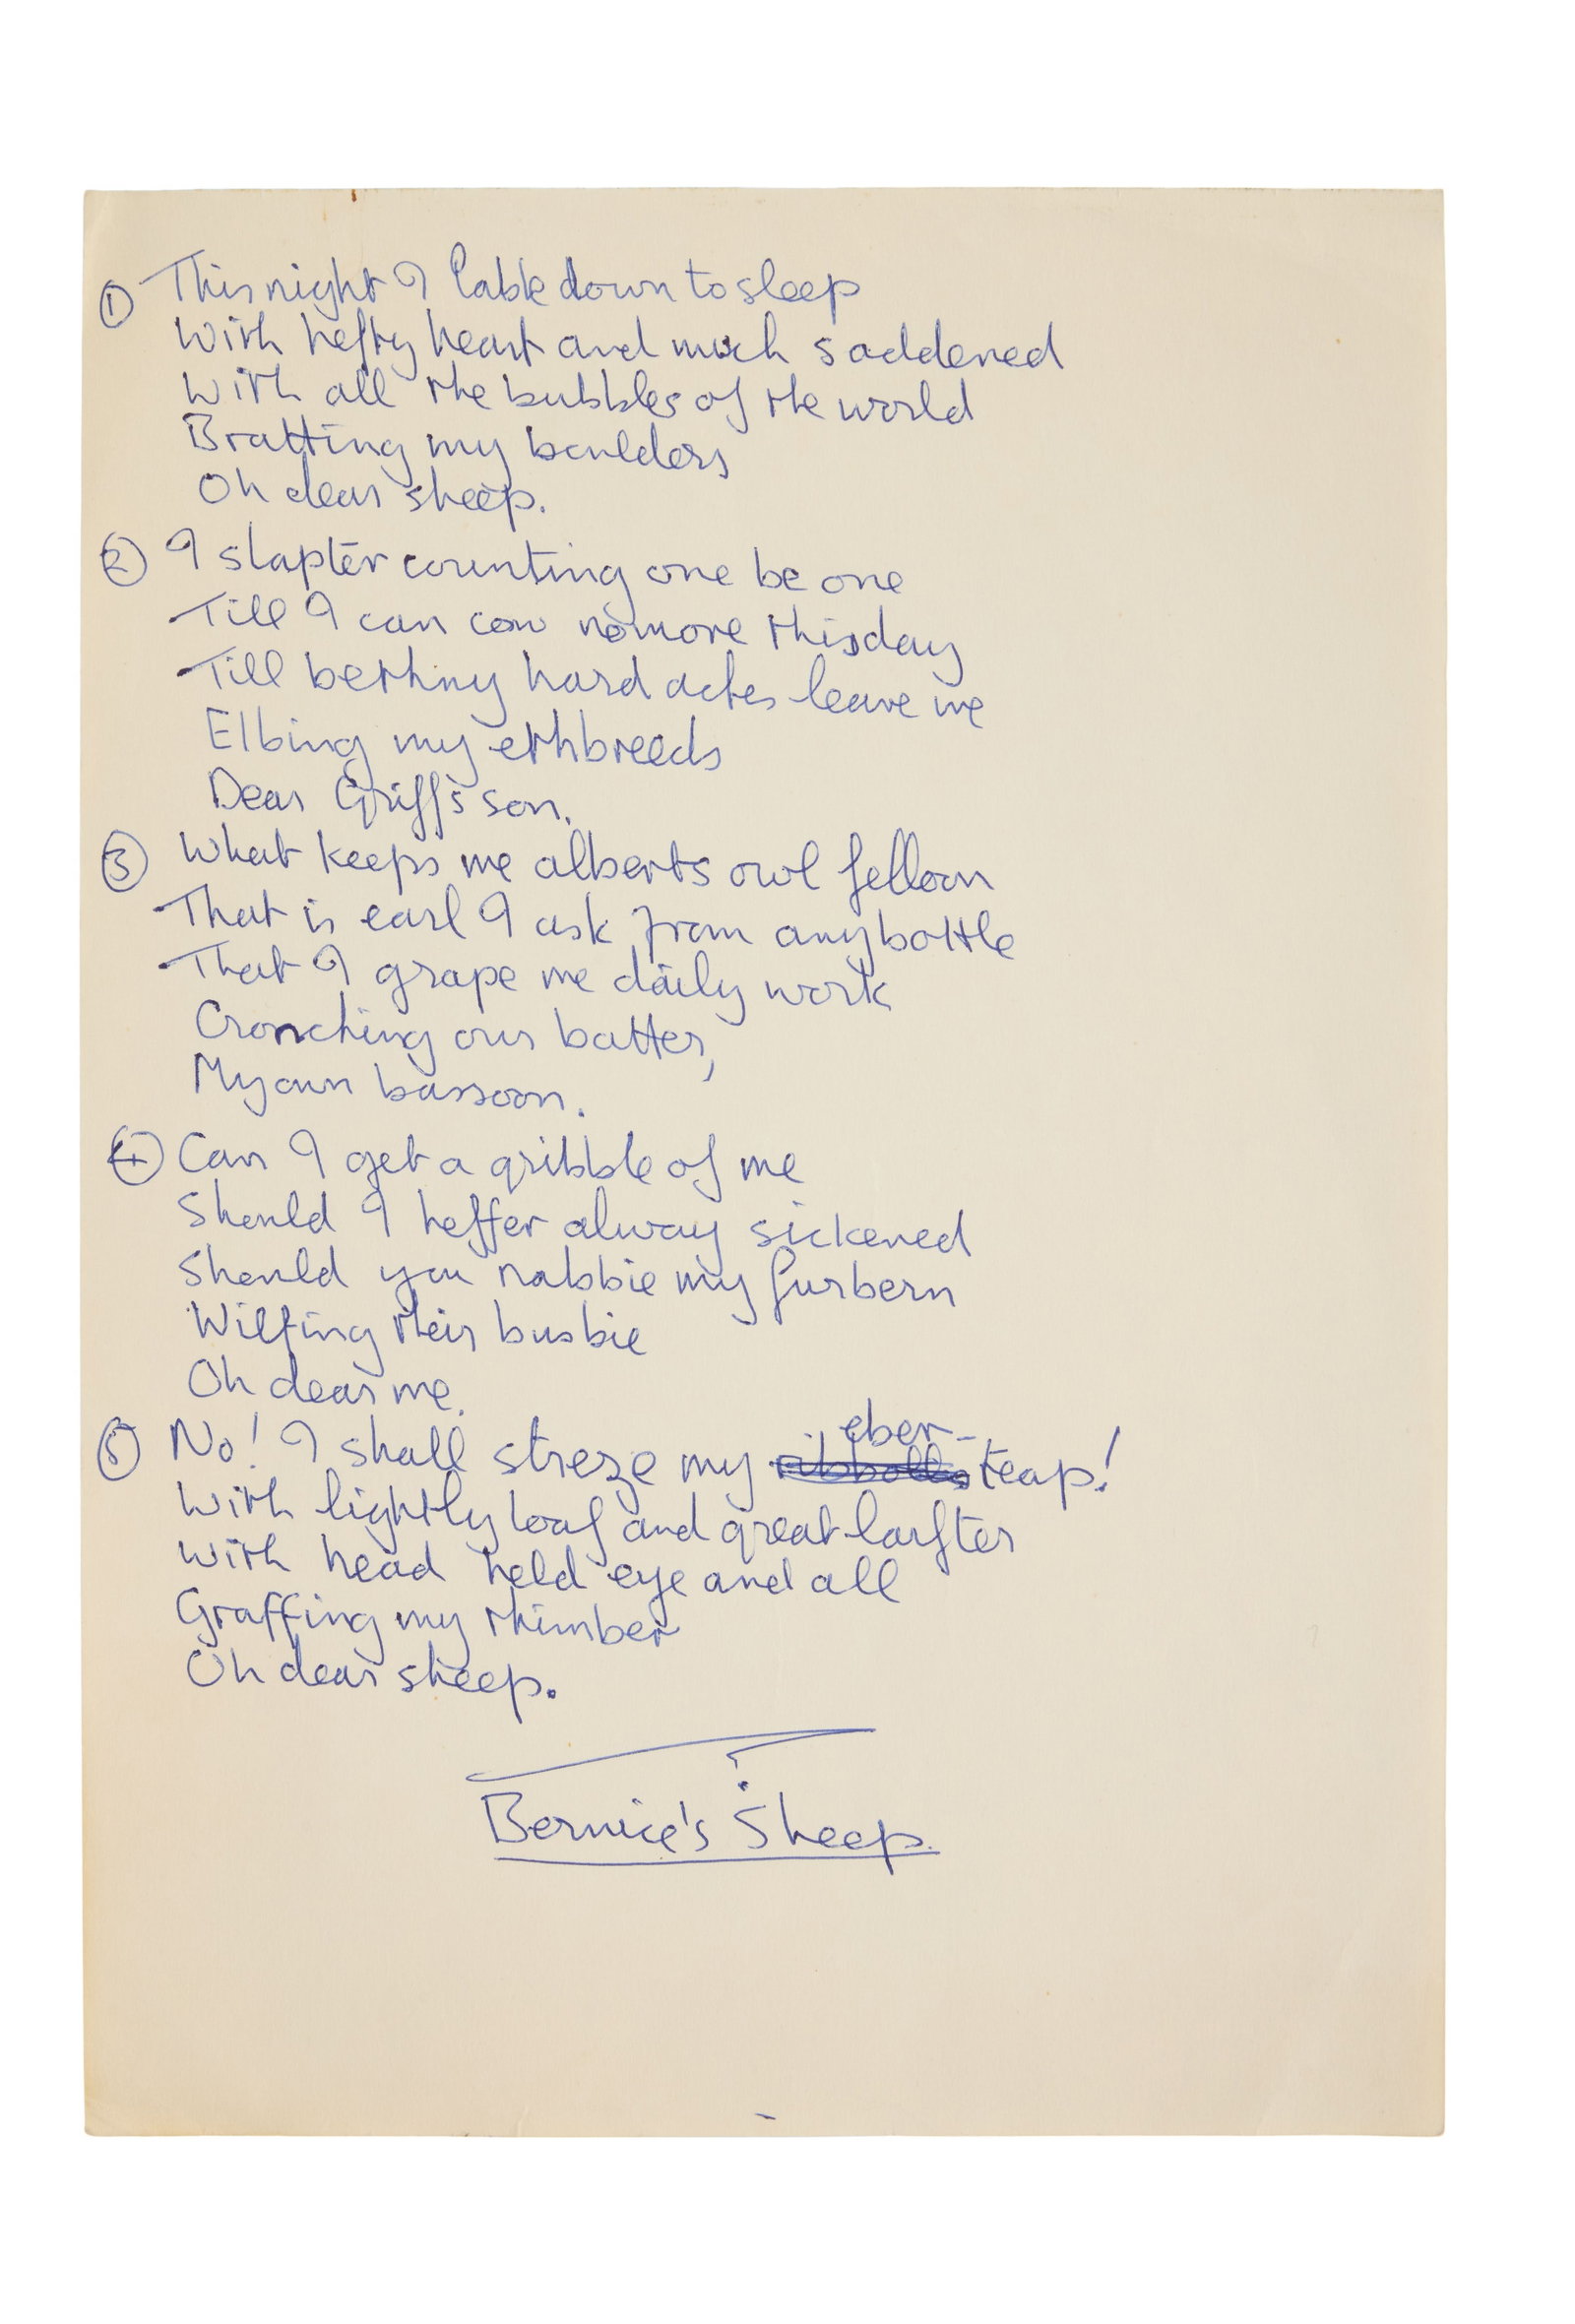 ① This night I lable down to sleep
With hefty heart and much saddened
With all the bubbles of the world
Bratting my boulders
Oh dear sheep.
② I slapter counting one be one
Till I can cow nomore thisday
Till bethny hard actes leave me
Elbing my ethbreeds
Dear Griff's son.
③ What keeps me alberts owl felloon
That is earl I ask from anybottle
That I grape me daily work
Cronching our batter,
My own bassoon.
④ Can I get a gribble of me
Should I heffer alway sickened
Should you nabbie my furbern
Wilfing their busbie
Oh dear me.
eber-
⑤ No! I shall streze my teap!
With lightly loaf and great larfter
With head held eye and all
Graffing my thimber
Oh dear sheep.
Bernice's Sheep.